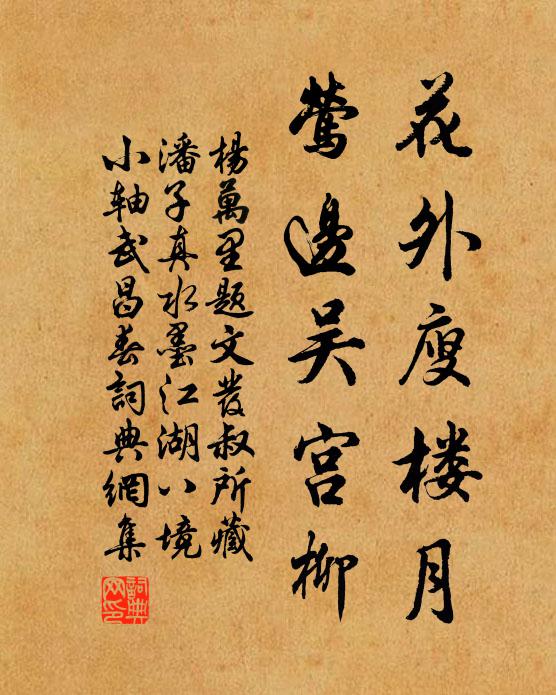 花外庾楼月
莺邊吴宫柳
楊萬里题文發叔所藏
潘子真水墨江湖八境
小轴武昌春詞典網集
詞典网印